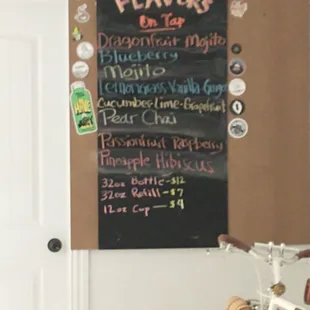 FLAVORS
On Tap
Dragonfruit Mojito
Blueberry
Mojito
Lemongrass Vanilla Ginger
Cucumber-Lime-Grapefruit
Pear Chai
Passionfruit Raspberry
Pineapple Hibiscus
32oz Bottle - $12
32oz Refill - $7
12oz Cup — $4